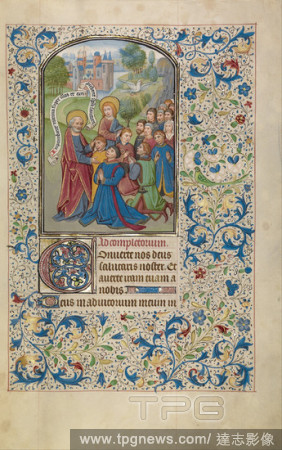 Ad completorium.
Onuerte nos deus
salutaris noster. Et
auerte iram tuam a
nobis
Deus in adiutorium meum in
TPG
www.tpgnews.com/達志影像